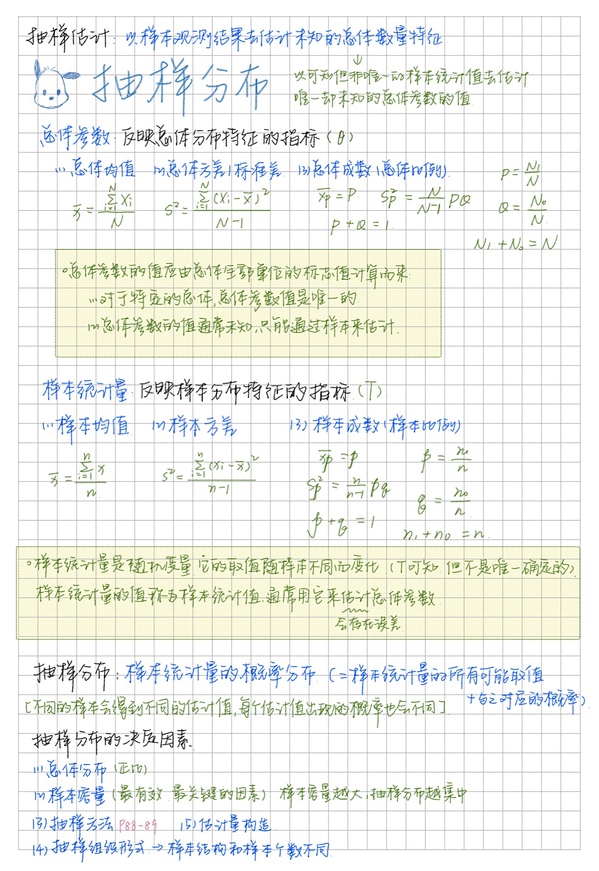 抽样估计：以样本观测结果去估计未知的总体数量特征
↓
抽样分布
以可知但非唯一的样本统计值去估计
唯一却未知的总体参数的值
总体参数：反映总体分布特征的指标（θ）
(1)总体均值 (2)总体方差/标准差 (3)总体成数(总体比例)
x̄ = Σ(i=1→N) Xi / N S² = Σ(i=1→N) (Xi-x̄)² / N-1 x̄p = P Sp² = N/(N-1) PQ P = N1/N
P+Q=1 Q = N0/N
N1+N0=N
总体参数的值应由总体全部单位的标志值计算而来
(1)对于特定的总体,总体参数值是唯一的
(2)总体参数的值通常未知,只能通过样本来估计.
样本统计量：反映样本分布特征的指标（T）
(1)样本均值 (2)样本方差 (3)样本成数(样本比例)
x̄ = Σ(i=1→n) x / n S² = Σ(i=1→n) (xi-x̄)² / n-1 x̄p = p p = n1/n
sp² = n/(n-1) pq q = n0/n
p+q=1 n1+n0=n.
样本统计量是随机变量 它的取值随样本不同而变化（T可知 但不是唯一确定的）
样本统计量的值称为样本统计值.通常用它来估计总体参数.
会存在误差
抽样分布：样本统计量的概率分布（=样本统计量的所有可能取值
+与之对应的概率）
[不同的样本会得到不同的估计值,每个估计值出现的概率也会不同]
抽样分布的决定因素.
(1)总体分布(正比)
(2)样本容量(最有效 最关键的因素) 样本容量越大,抽样分布越集中
(3)抽样方法 P88-89 (5)估计量构造
(4)抽样组织形式→样本结构和样本个数不同